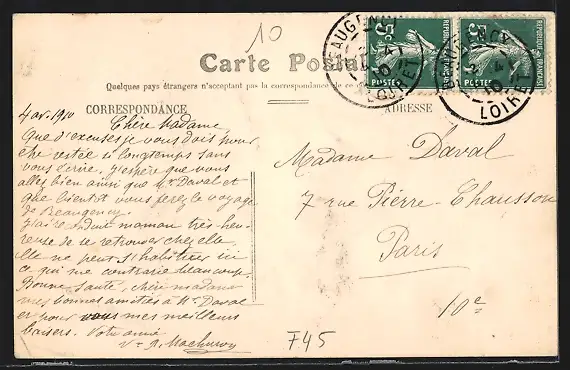 10
Carte Postale
Quelques pays étrangers n'acceptent pas la correspondance de ce
CORRESPONDANCE
ADRESSE
BEAUGENCY
LOIRET
5c
REPUBLIQUE FRANÇAISE
POSTES
BEAUGENCY
LOIRET
5c
REPUBLIQUE FRANÇAISE
POSTES
4 av. 1910
Chère Madame
Que d'excuses je vous dois pour
être restée si longtemps sans
vous écrire, j'espère que vous
allez bien ainsi que Mr Daval et
que bientôt vous ferez le voyage
de Beaugency.
maman très heu-
reuse de se retrouver chez elle
elle ne peut s'habituer ici
ce qui me contrarie beaucoup.
Bonne santé, chère madame
mes bonnes amitiés à Mr Daval
et pour vous mes meilleurs
baisers. Votre amie
Madame Daval
7 rue Pierre-Chausson
Paris
10e
F45